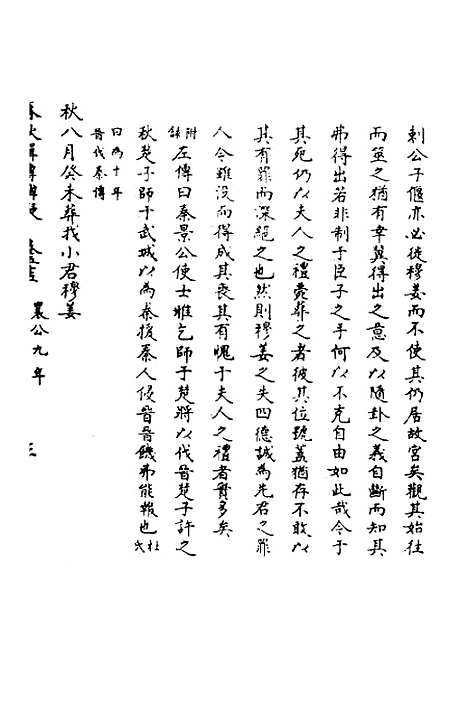 刺公子偃亦必從穆姜而不使其仍居故宮矣觀其始往
而筮之猶有幸冀得出之意及以隨卦之義自斷而知其
弗得出若非制于臣子之手何以不克自由如此哉今于
其死仍以夫人之禮薨葬之者彼其位號蓋猶存不敢以
其有罪而深絕之也然則穆姜之失四德誠為先君之罪
人今雖沒而得成其喪其有愧于夫人之禮者實多矣
附錄左傳曰秦景公使士雃乞師于楚將以伐晉楚子許之
秋楚子師于武城以為秦援秦人侵晉晉饑弗能報也杜氏
曰為十年晉伐秦傳
秋八月癸未葬我小君穆姜
春秋輯傳辨疑
襄公九年
三